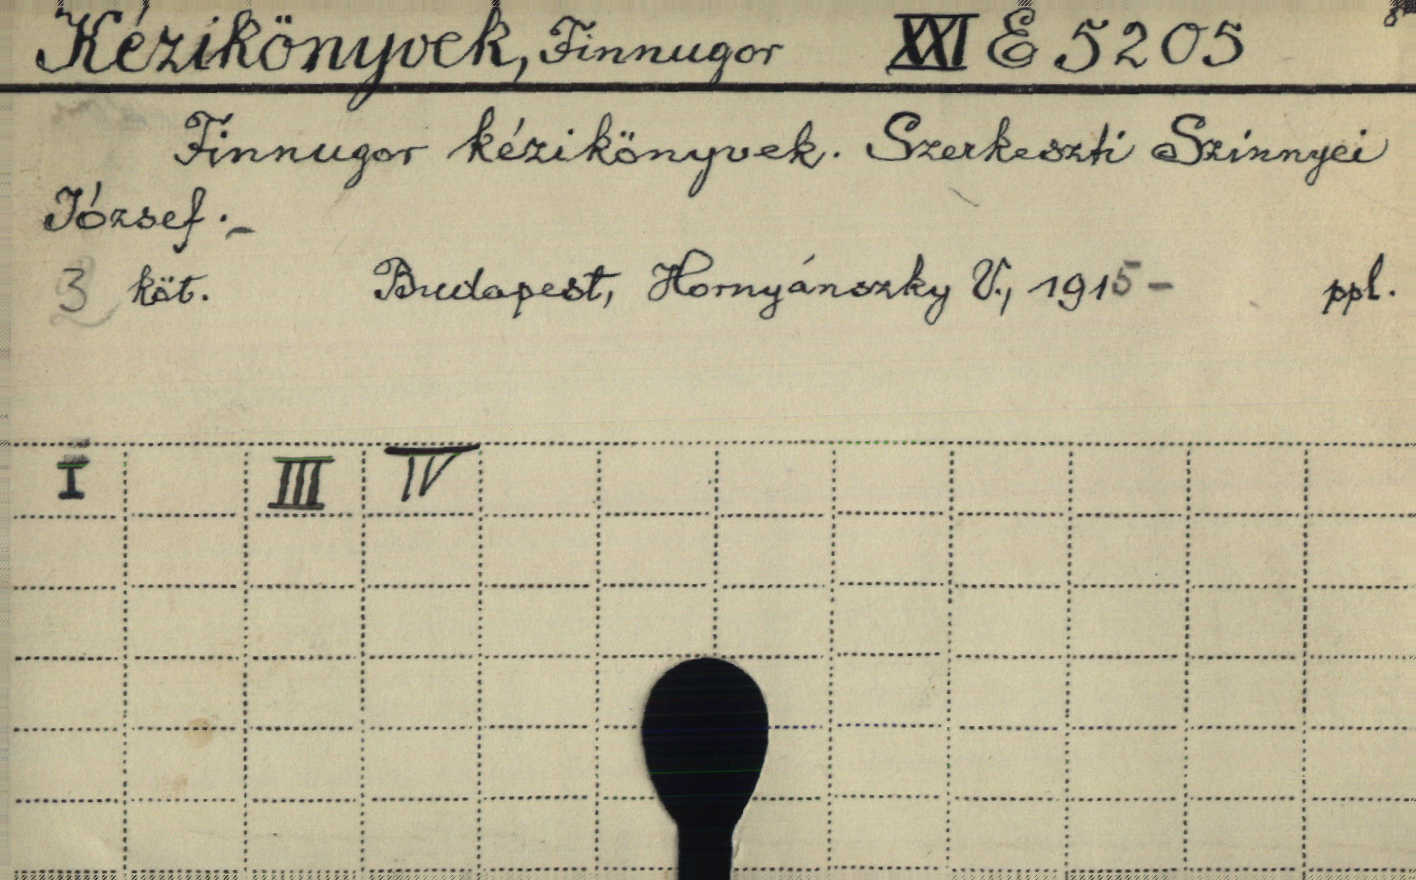 Kézikönyvek, Finnugor XXI E 5205
Finnugor kézikönyvek. Szerkeszti Szinnyei
József.-
3 köt. Budapest, Hornyánszky V., 1915- ppl.
I III IV